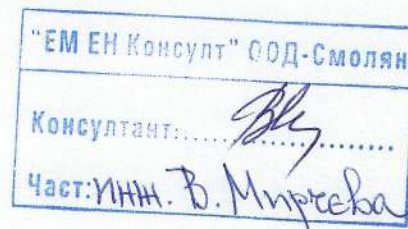 "ЕМ ЕН Консулт" ООД-Смолян
Консултант:....................
Част: инж. В. Мирчева